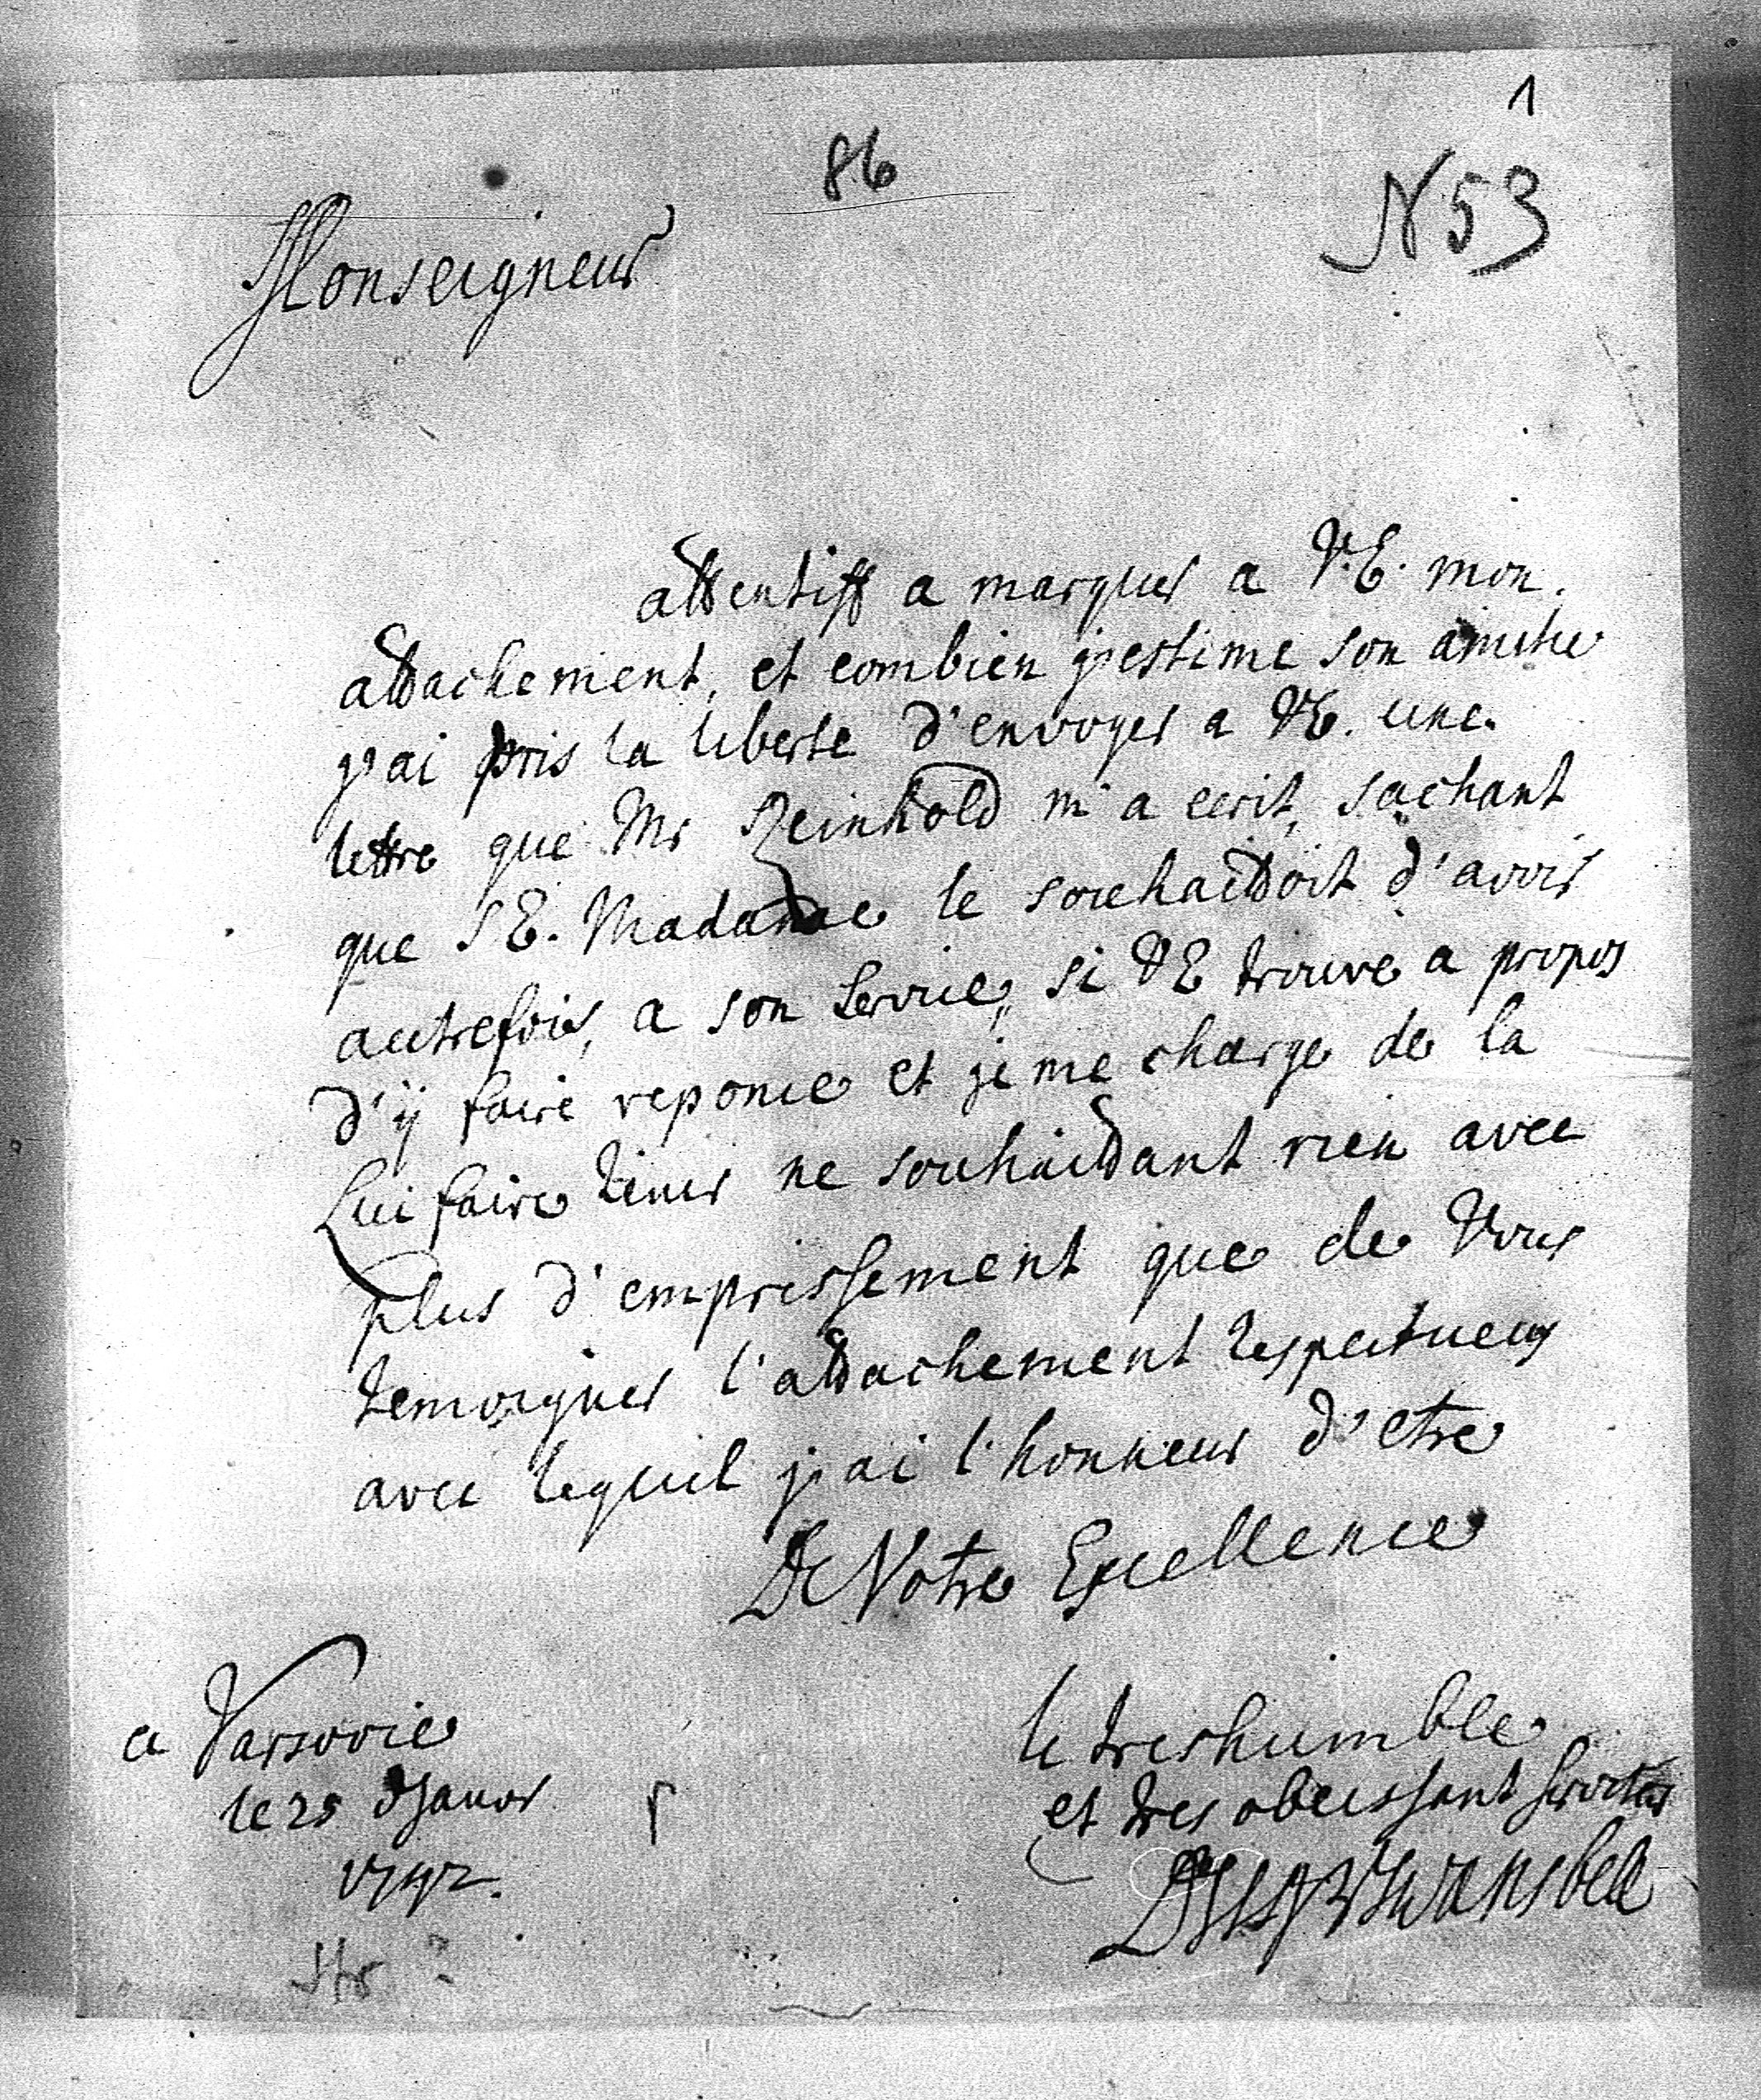 1
86
N 53
Monseigneur
attentiff a marquer a V.E. mon
attachement, et combien j'estime son amitie
j'ai pris la liberte d'envoyer a VE. une
lettre que Mr Reinhold m'a ecrit, sachant
que S E. Madame le souhaittoit d'avoir
autrefois, a son service, si VE trouve a propos
d'ÿ faire reponce et je me charge de la
Lui faire tenir ne souhaittant rien avec
plus d'empressement que de Vous
temoigner l'attachement respectueux
avec lequel j'ai l'honneur d'etre
De Votre Excellence
a Varsovie
le 25 Janvr
1742.
le treshumble
et tres obeissant serviteur